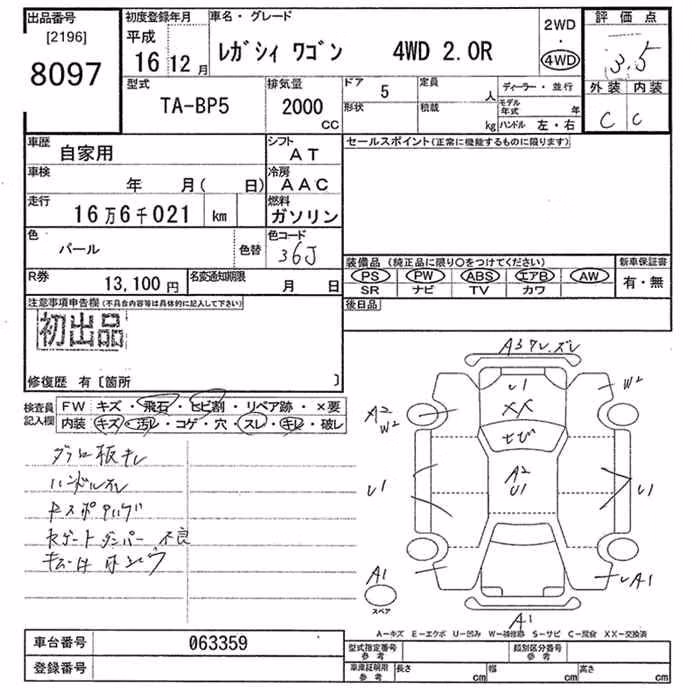 出品番号
[2196]
8097
初度登録年月
平成
16 12 月
車名・グレード
ﾚｶﾞｼィ ﾜｺﾞﾝ 4WD 2.0R
2WD
・
4WD
評価点
3.5
外装 内装
C C
型式
TA-BP5
排気量
2000
CC
ドア 5
形状
定員 人
積載 kg
ディーラー・並行
モデル年式 年
ハンドル 左・右
車歴
自家用
シフト
AT
車検
年 月( 日)
冷房
AAC
走行
16万6千021 km
燃料
ガソリン
色
パール
色替
色コード
36J
R券
13,100 円
名変通知期限
月 日
セールスポイント(正常に機能するものに限ります)
装備品 (純正品に限り○をつけてください)
PS PW ABS エアB AW
SR ナビ TV カワ
新車保証書
有・無
後日品
注意事項申告欄(不具合内容等は具体的に記入して下さい)
初出品
修復歴 有〔箇所 〕
検査員
記入欄
FW キズ・飛石・ヒビ割・リペア跡・×要
内装 キズ・汚レ・コゲ・穴・スレ・キレ・破レ
ハンドルスレ
ダンパー 不良
A2
W2
U1
XX
ヒビ
A2
U1
W2
U1
U1
A1
スペア
A1
A1
A-キズ E-エクボ U-凹み W-補修跡 S-サビ C-腐食 XX-交換済
車台番号
063359
登録番号
型式指定番号
参考
類別区分番号
参考
車庫証明用
参考
長さ cm
幅 cm
高さ cm